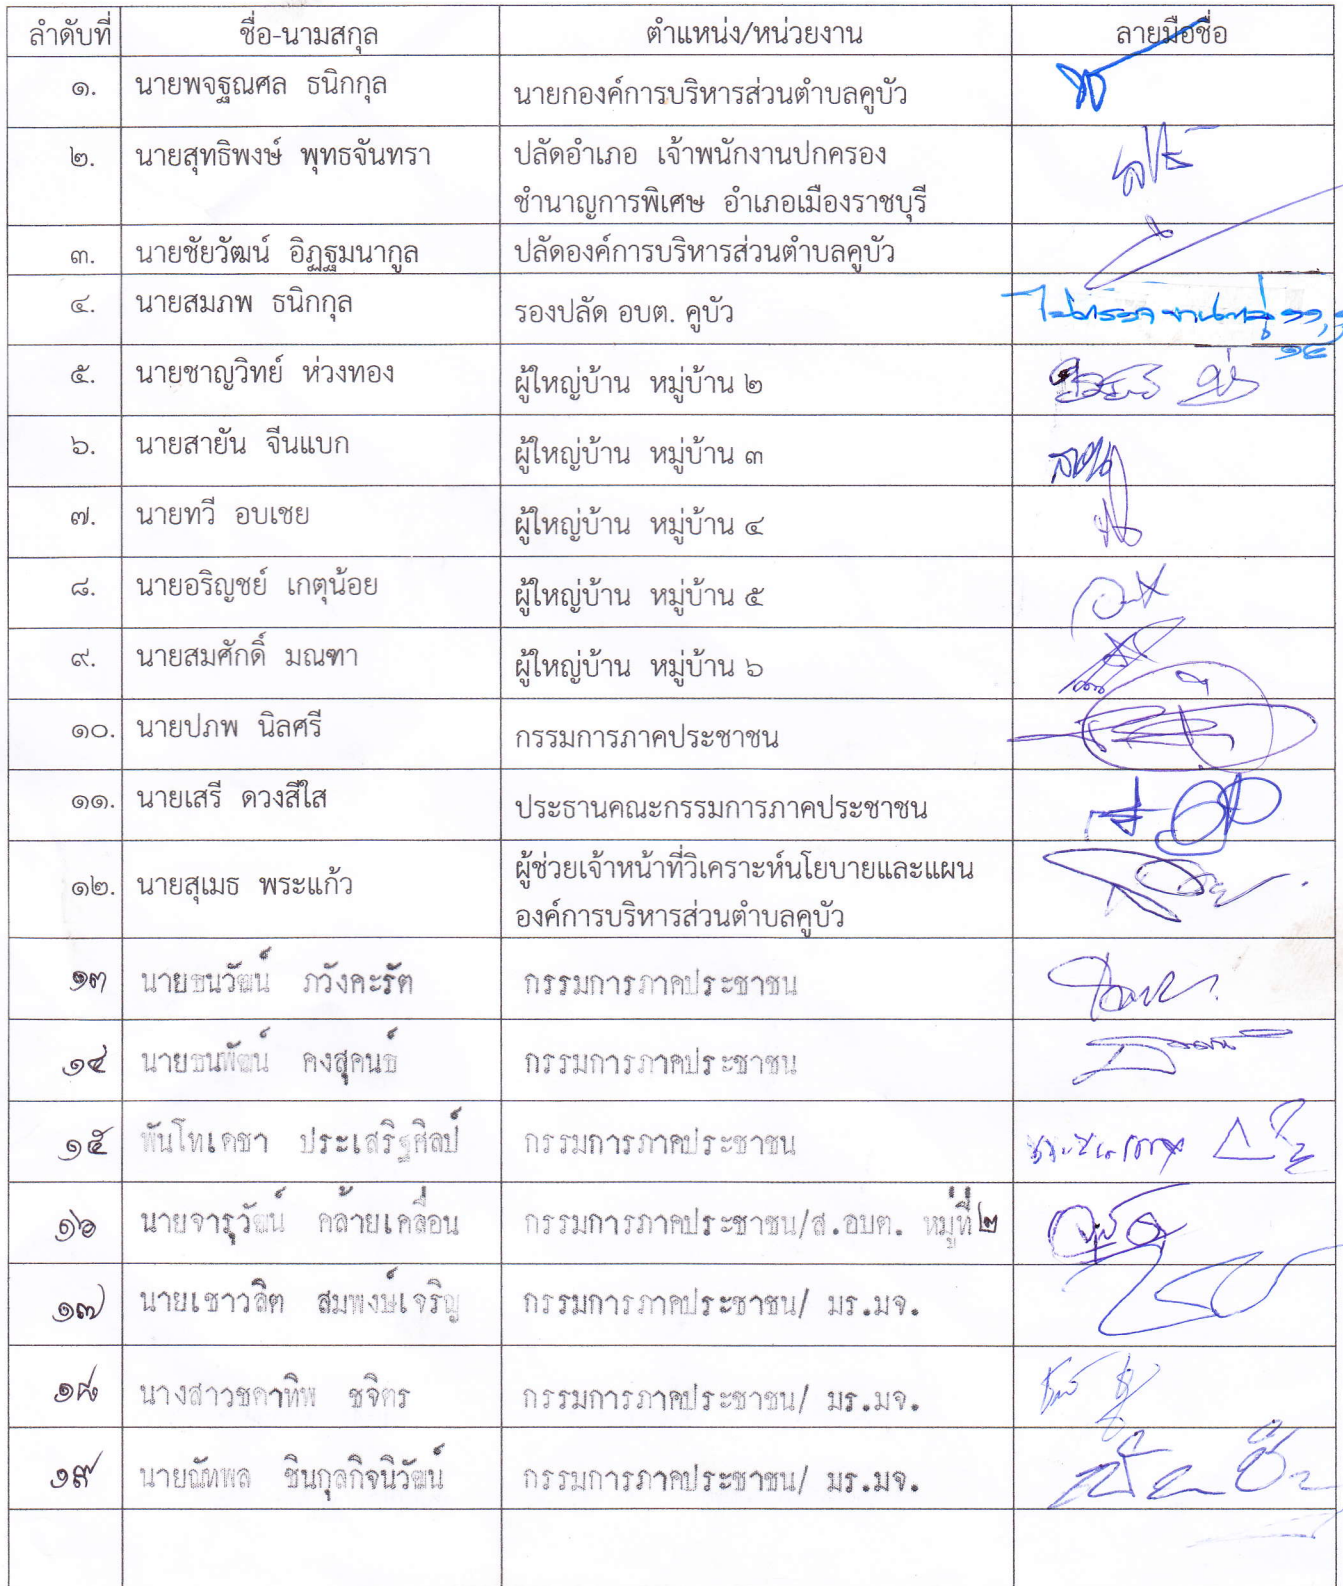 ลำดับที่ ชื่อ-นามสกุล ตำแหน่ง/หน่วยงาน ลายมือชื่อ
๑. นายพจฐณศล ธนิกกุล นายกองค์การบริหารส่วนตำบลคูบัว
๒. นายสุทธิพงษ์ พุทธจันทรา ปลัดอำเภอ เจ้าพนักงานปกครอง
ชำนาญการพิเศษ อำเภอเมืองราชบุรี
๓. นายชัยวัฒน์ อิฏฐมนากูล ปลัดองค์การบริหารส่วนตำบลคูบัว
๔. นายสมภพ ธนิกกุล รองปลัด อบต. คูบัว
๕. นายชาญวิทย์ ห่วงทอง ผู้ใหญ่บ้าน หมู่บ้าน ๒
๖. นายสายัน จีนแบก ผู้ใหญ่บ้าน หมู่บ้าน ๓
๗. นายทวี อบเชย ผู้ใหญ่บ้าน หมู่บ้าน ๔
๘. นายอริญชย์ เกตุน้อย ผู้ใหญ่บ้าน หมู่บ้าน ๕
๙. นายสมศักดิ์ มณฑา ผู้ใหญ่บ้าน หมู่บ้าน ๖
๑๐. นายปภพ นิลศรี กรรมการภาคประชาชน
๑๑. นายเสรี ดวงสีใส ประธานคณะกรรมการภาคประชาชน
๑๒. นายสุเมธ พระแก้ว ผู้ช่วยเจ้าหน้าที่วิเคราะห์นโยบายและแผน
องค์การบริหารส่วนตำบลคูบัว
๑๓ นายธนวัฒน์ ภวังคะรัต กรรมการภาคประชาชน
๑๔ นายธนพัฒน์ คงสุคนธ์ กรรมการภาคประชาชน
๑๕ พันโทเดชา ประเสริฐศิลป์ กรรมการภาคประชาชน
๑๖ นายจารุวัฒน์ คล้ายเคลื่อน กรรมการภาคประชาชน/ส.อบต. หมู่ที่ ๒
๑๗ นายเชาวลิต สมพงษ์เจริญ กรรมการภาคประชาชน/ มร.มจ.
๑๘ นางสาวชคาทิพ ชจิตร กรรมการภาคประชาชน/ มร.มจ.
๑๙ นายณัทพล ชินกุลกิจนิวัฒน์ กรรมการภาคประชาชน/ มร.มจ.